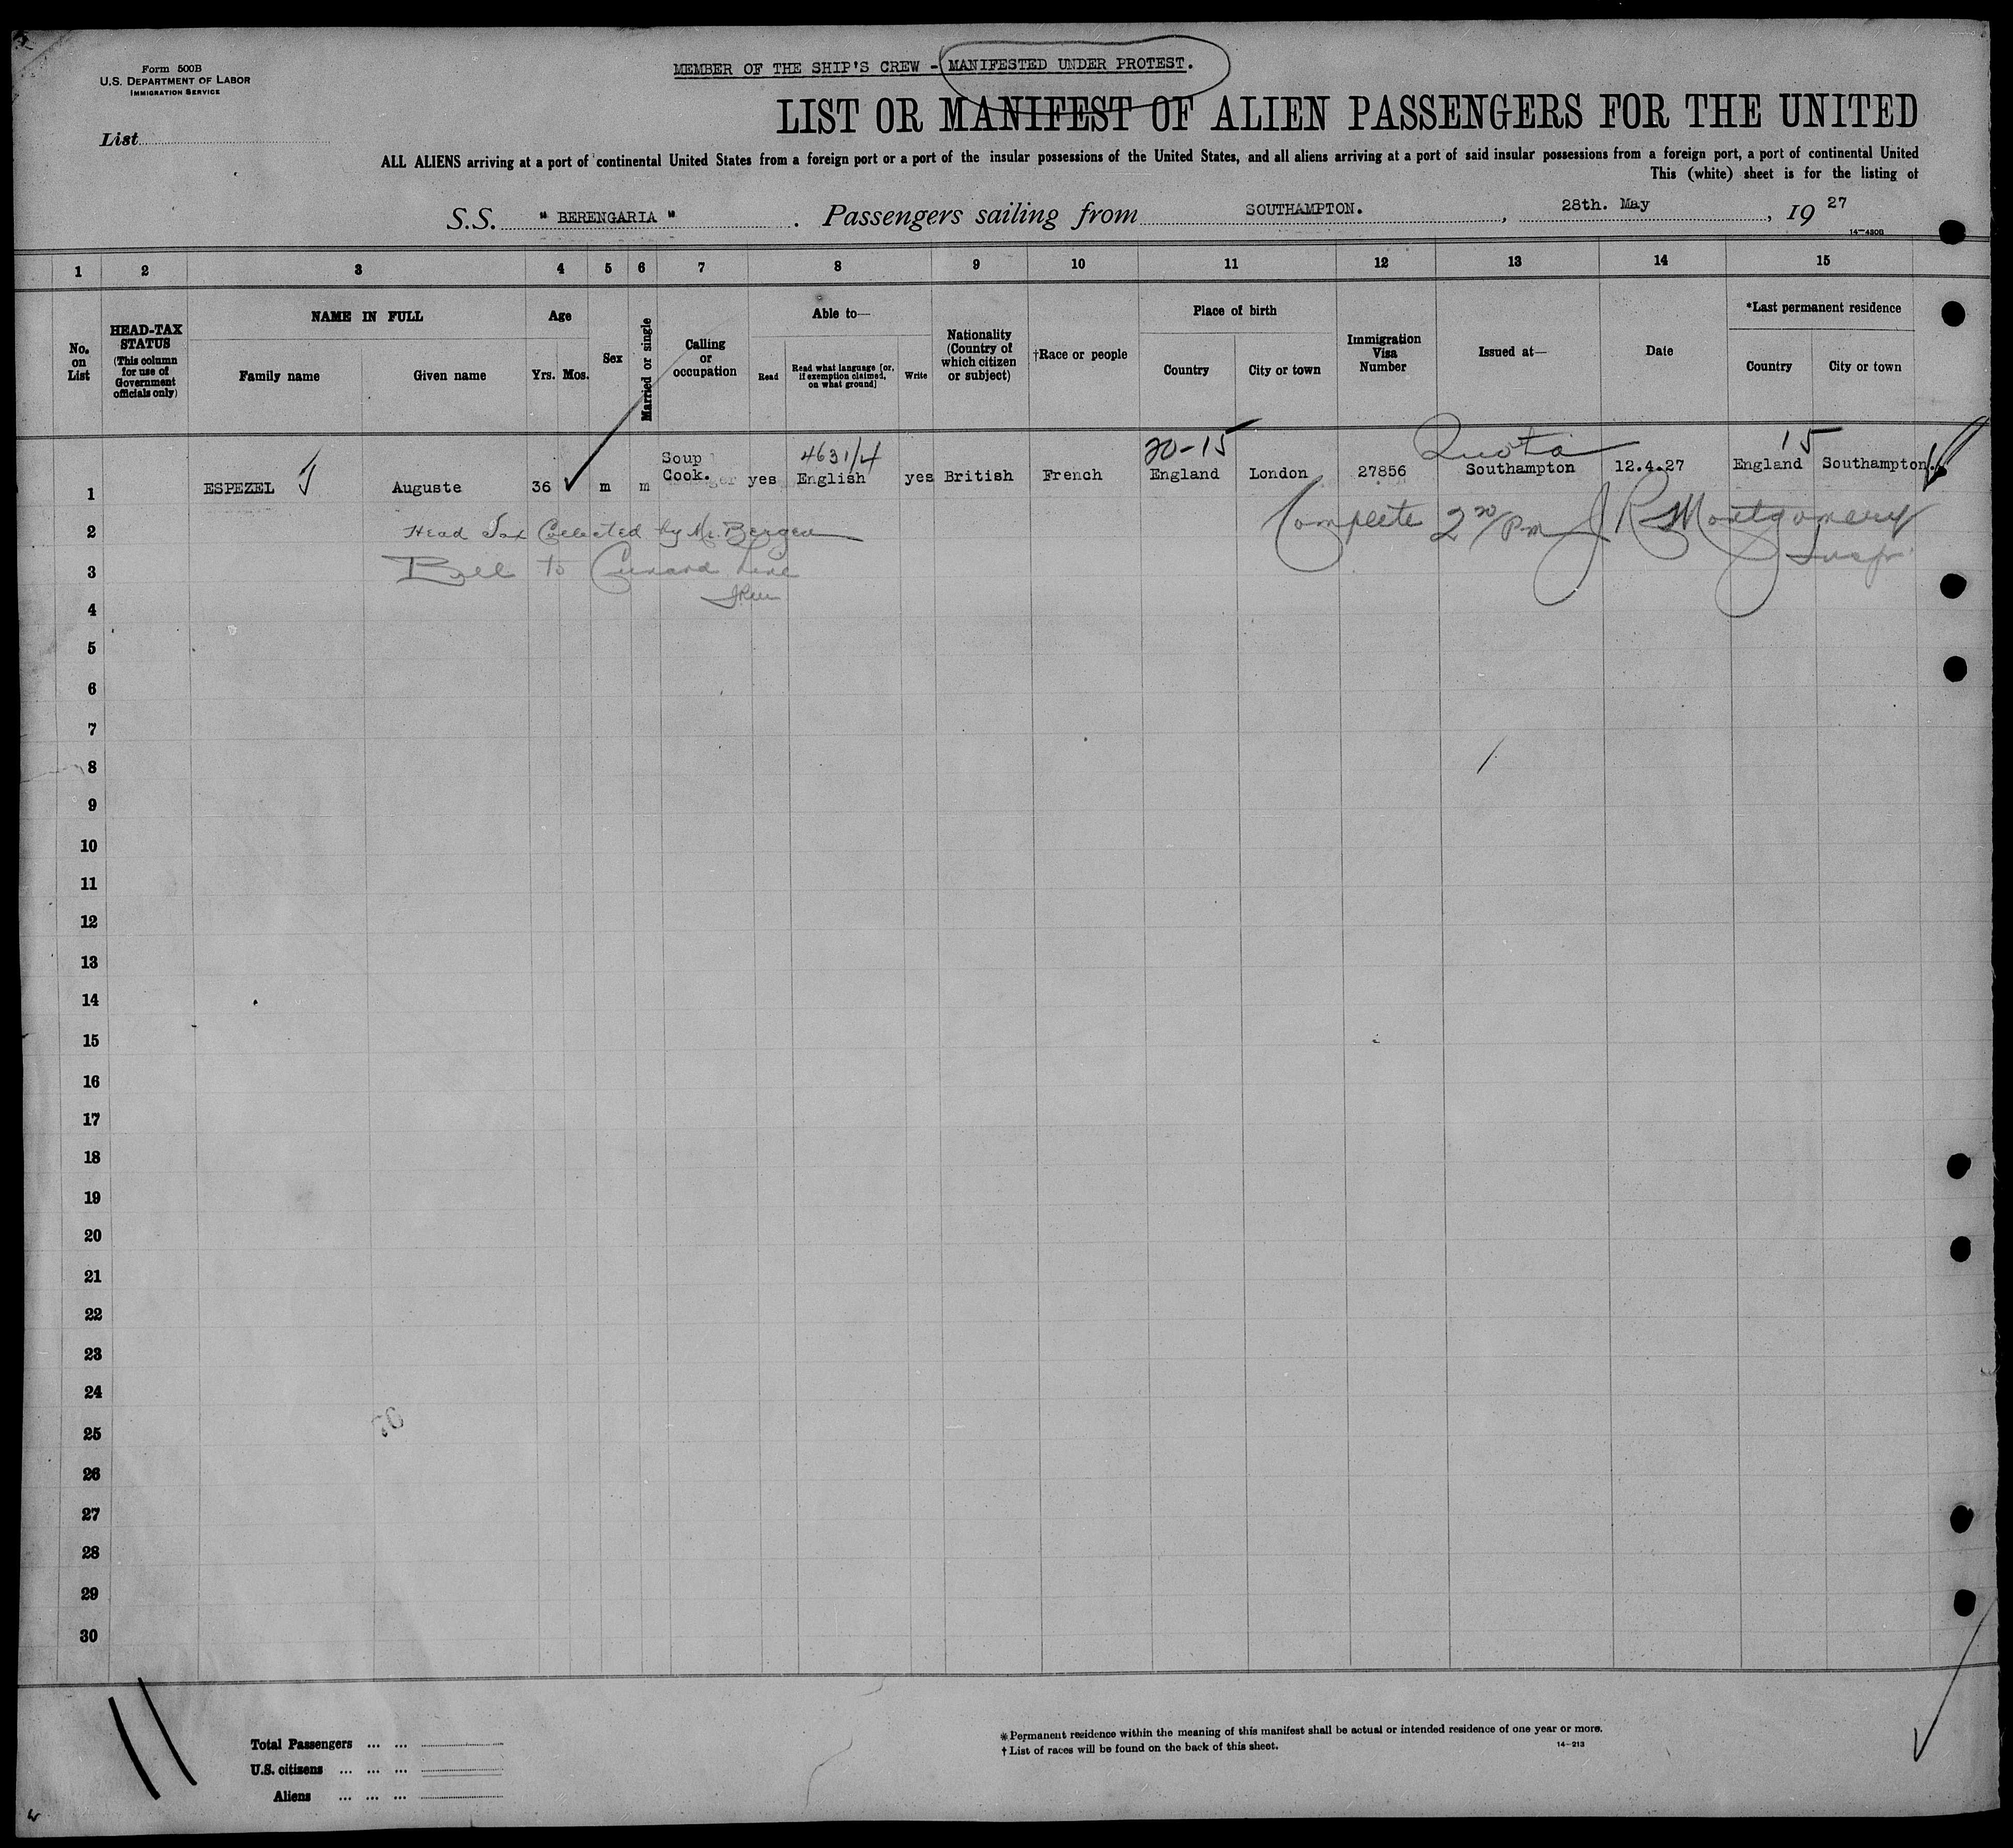 Form 500B
U.S. DEPARTMENT OF LABOR
IMMIGRATION SERVICE
MEMBER OF THE SHIP'S CREW - MANIFESTED UNDER PROTEST.
LIST OR MANIFEST OF ALIEN PASSENGERS FOR THE UNITED
List
ALL ALIENS arriving at a port of continental United States from a foreign port or a port of the insular possessions of the United States, and all aliens arriving at a port of said insular possessions from a foreign port, a port of continental United
This (white) sheet is for the listing of
S.S. " BERENGARIA " . Passengers sailing from SOUTHAMPTON. , 28th. May , 19 27
14-430B
1 2 3 4 5 6 7 8 9 10 11 12 13 14 15
No. on List
HEAD-TAX STATUS (This column for use of Government officials only)
NAME IN FULL
Family name Given name
Age
Yrs. Mos.
Sex
Married or single
Calling or occupation
Able to—
Read
Read what language [or, if exemption claimed, on what ground]
Write
Nationality (Country of which citizen or subject)
†Race or people
Place of birth
Country City or town
Immigration Visa Number
Issued at—
Date
*Last permanent residence
Country City or town
4631/4 20-15 Quota 15
1 ESPEZEL Auguste 36 m m Soup Cook. yes English yes British French England London 27856 Southampton 12.4.27 England Southampton.
2 Head Tax Collected by Mr. Bergen Complete 2 20/PM J R Montgomery
Inspr
3 Bill to Cunard Line
JRM
4
5
6
7
8
9
10
11
12
13
14
15
16
17
18
19
20
21
22
23
24
25
26
27
28
29
30
Total Passengers ... ...
U.S. citizens ... ... ...
Aliens ... ... ...
* Permanent residence within the meaning of this manifest shall be actual or intended residence of one year or more.
† List of races will be found on the back of this sheet.
14-213